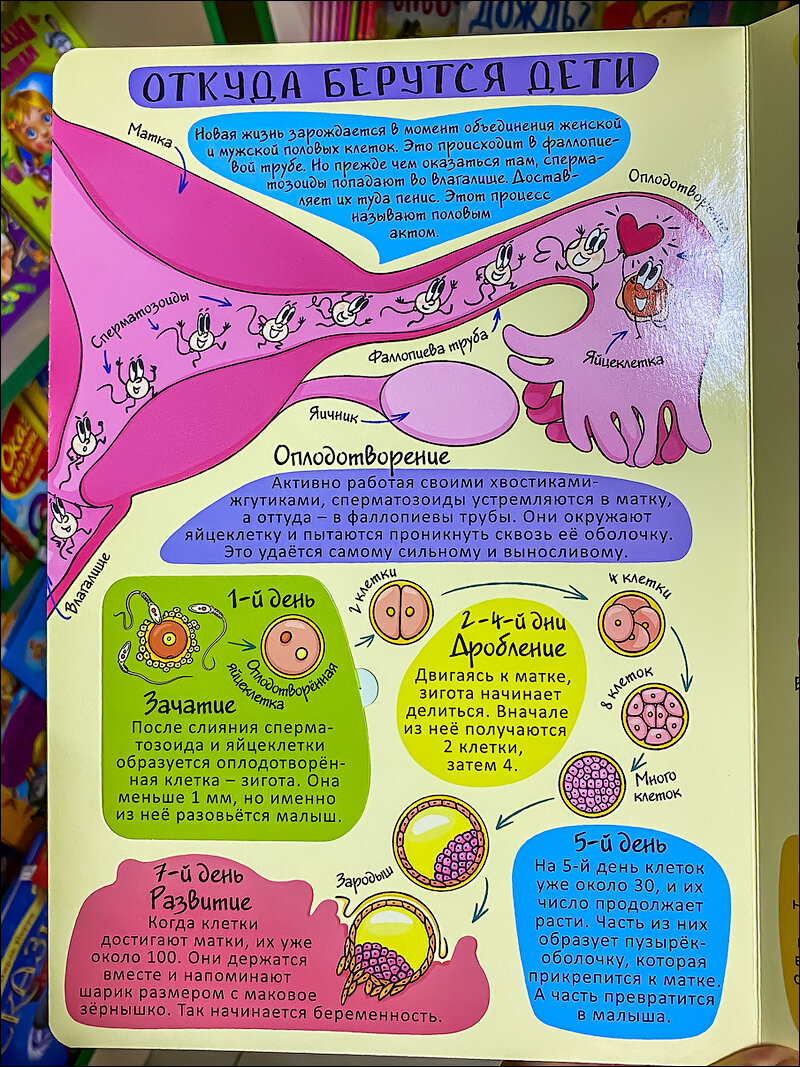 ДОЖДЬ?
ОТКУДА БЕРУТСЯ ДЕТИ
Матка
Новая жизнь зарождается в момент объединения женской
и мужской половых клеток. Это происходит в фаллопие-
вой трубе. Но прежде чем оказаться там, сперма-
тозоиды попадают во влагалище. Достав-
ляет их туда пенис. Этот процесс
называют половым
актом.
Оплодотворение
Сперматозоиды
Фаллопиева труба
Яйцеклетка
Яичник
Влагалище
Оплодотворение
Активно работая своими хвостиками-
жгутиками, сперматозоиды устремляются в матку,
а оттуда – в фаллопиевы трубы. Они окружают
яйцеклетку и пытаются проникнуть сквозь её оболочку.
Это удаётся самому сильному и выносливому.
1-й день
Оплодотворённая
яйцеклетка
Зачатие
После слияния сперма-
тозоида и яйцеклетки
образуется оплодотворён-
ная клетка – зигота. Она
меньше 1 мм, но именно
из неё разовьётся малыш.
2 клетки
4 клетки
8 клеток
Много
клеток
2-4-й дни
Дробление
Двигаясь к матке,
зигота начинает
делиться. Вначале
из неё получаются
2 клетки,
затем 4.
5-й день
На 5-й день клеток
уже около 30, и их
число продолжает
расти. Часть из них
образует пузырёк-
оболочку, которая
прикрепится к матке.
А часть превратится
в малыша.
Зародыш
7-й день
Развитие
Когда клетки
достигают матки, их уже
около 100. Они держатся
вместе и напоминают
шарик размером с маковое
зёрнышко. Так начинается беременность.